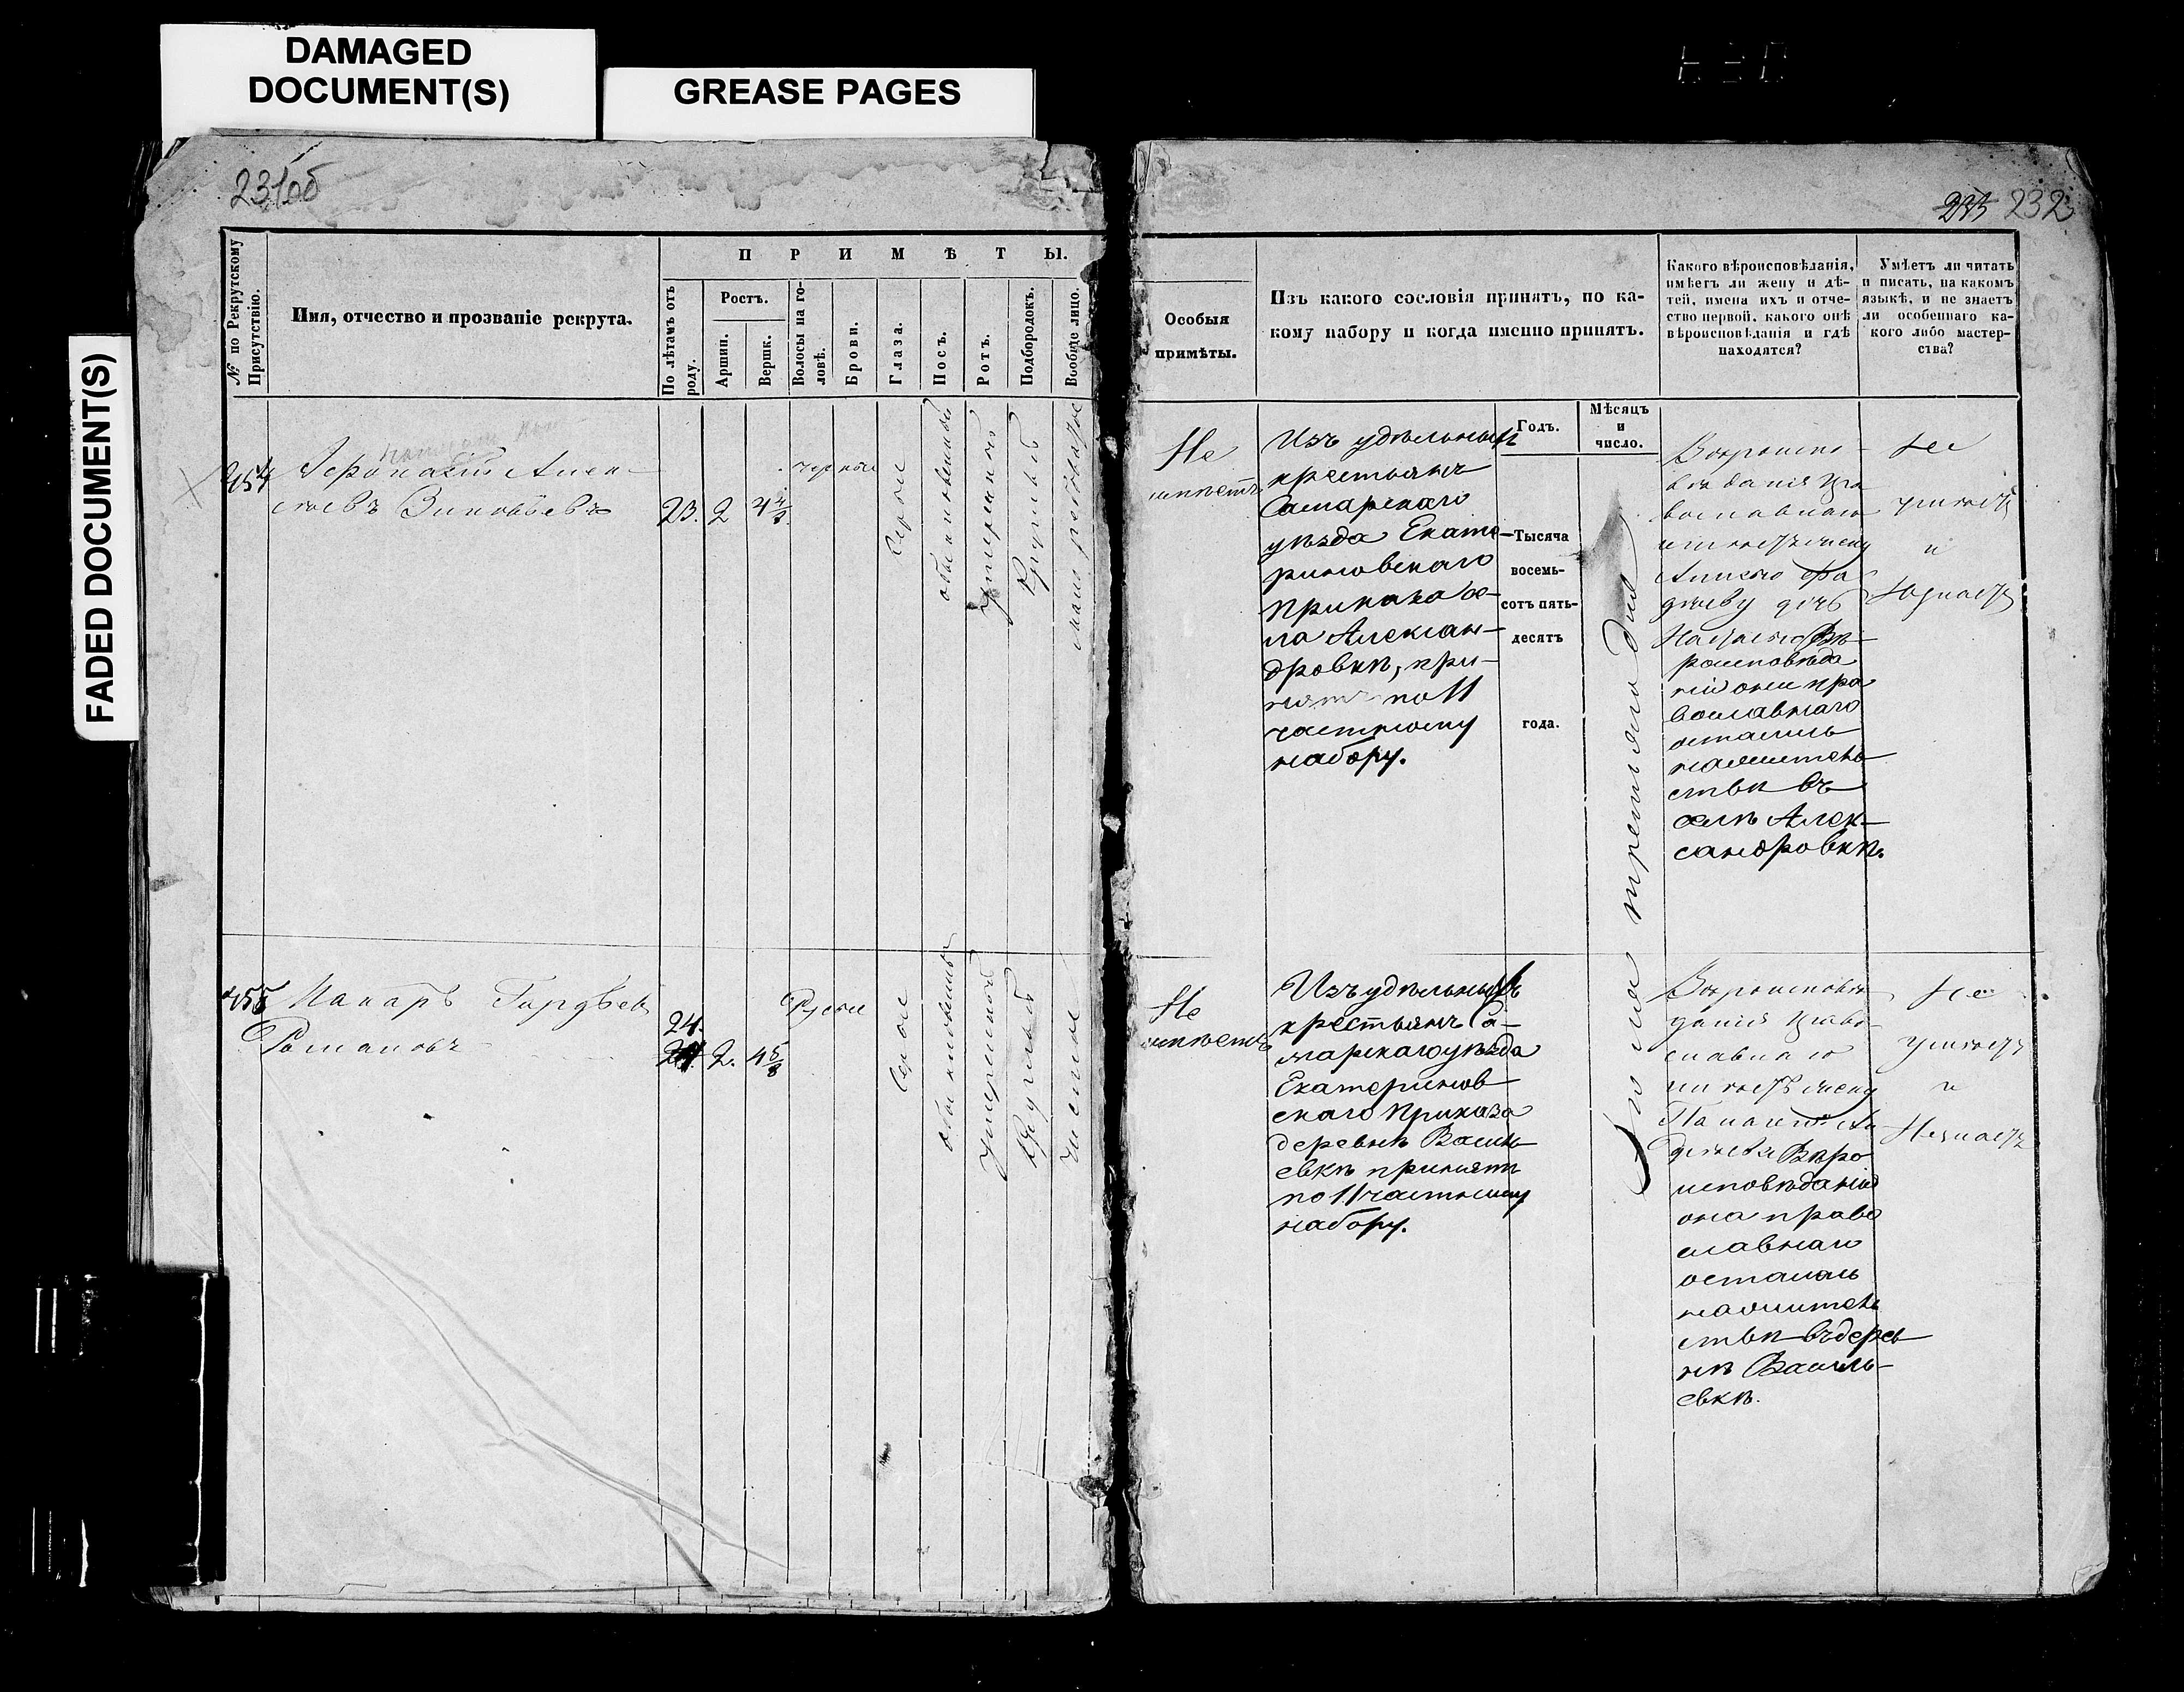 DAMAGED
DOCUMENT(S)
GREASE PAGES
FADED DOCUMENT(S)
231об
232
№ по Рекрутскому
Присутствію.
Имя, отчество и прозваніе рекрута.
П Р И М Ѣ Т Ы.
По лѣтамъ отъ
роду.
Ростъ.
Аршин.
Вершк.
Волосы на го-
ловѣ.
Брови.
Глаза.
Носъ.
Ротъ.
Подбородокъ.
Вообще лицо.
454
Алек-
сѣевъ Зиновьевъ
23. 2 4
черные
Серые
обыкновенный
умеренный
Круглый
455 Макаръ Гордѣев
Романовъ
24.
2. 4 5/8
Русые
Серые
обыкновенный
умеренный
Круглый
чистое
Особыя
примѣты.
Изъ какого сословія принятъ, по ка-
кому набору и когда именно принятъ.
Какого вѣроисповѣданія,
имѣетъ ли жену и дѣ-
тей, имена ихъ и отче-
ство первой, какого онѣ
вѣроисповѣданія и гдѣ
находятся?
Умѣетъ ли читать
и писать, на какомъ
языкѣ, и не знаетъ
ли особеннаго ка-
кого либо мастер-
ства?
Годъ.
Мѣсяцъ
и
число.
Тысяча
восемь-
сотъ пять-
десятъ
года.
третьяго дня
Не
имѣетъ
Изъ удѣльныхъ
крестьянъ
Самарскаго
уѣзда Екате-
риновскаго
Приказа се-
ла Алексан-
дровки, при-
нятъ по 11
частному
набору.
Вѣроиспо-
вѣданія пра
вославнаго
имѣетъ жену
дочь
Вѣ-
роисповѣда
ній они пра
вославнаго
остались
нажитель
ствѣ въ
селѣ Алек-
сандровкѣ.
Не
умѣетъ
и
Незнаетъ
Не
имѣетъ
Изъ удѣльныхъ
крестьянъ Са-
марскаго уѣзда
Екатеринов
скаго Приказа
деревни Василь
евки принятъ
по 11 частному
набору.
Вѣроисповѣ
данія право-
славнаго
имѣетъ жену
Вѣро
исповѣданій
она право
славнаго
осталась
нажитель
ствѣ въ дерев
нѣ Василь-
евкѣ.
Не
умѣетъ
и
Незнаетъ